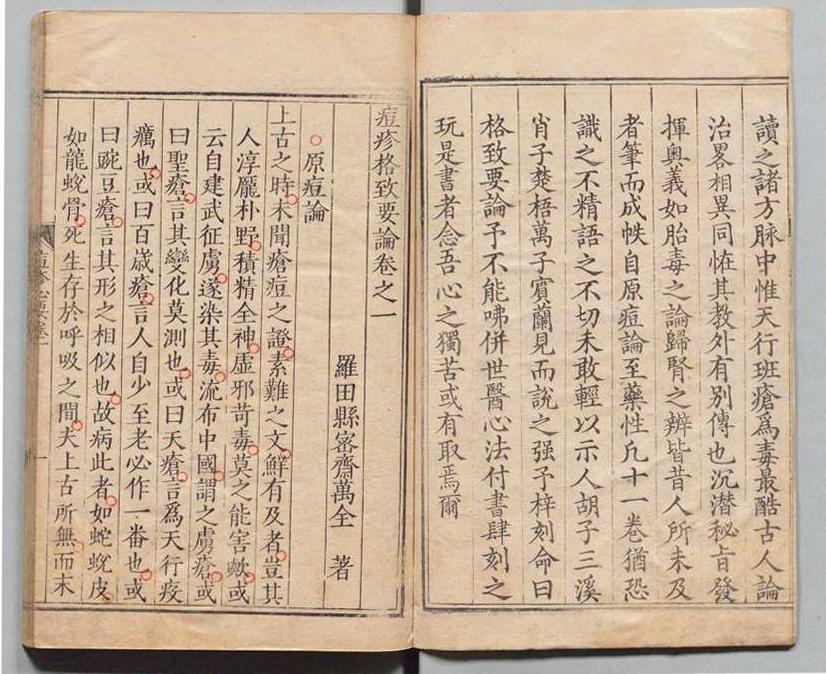 讀之諸方脉中惟天行班瘡爲毒最酷古人論
治畧相異同恠其教外有別傳也沉潜秘旨發
揮奥義如胎毒之論歸腎之辨皆昔人所未及
者筆而成帙自原痘論至藥性凢十一卷猶恐
識之不精語之不切未敢輕以示人胡子三溪
肖子楚梧萬子賓蘭見而說之强予梓刻命曰
格致要論予不能咈併世醫心法付書肆刻之
玩是書者念吾心之獨苦或有取焉爾
痘疹格致要論卷之一
羅田縣密齋萬全 著
○原痘論
上古之時未聞瘡痘之證素難之文鮮有及者豈其
人淳龐朴野積精全神虛邪苛毒莫之能害歟或
云自建武征虜遂染其毒流布中國謂之虜瘡或
曰聖瘡言其變化莫測也或曰天瘡言爲天行疫
癘也或曰百歲瘡言人自少至老必作一番也或
曰豌豆瘡言其形之相似也故病此者如蛇蛻皮
如龍蛻骨死生存於呼吸之間夫上古所無而末
痘疹 卷一
一